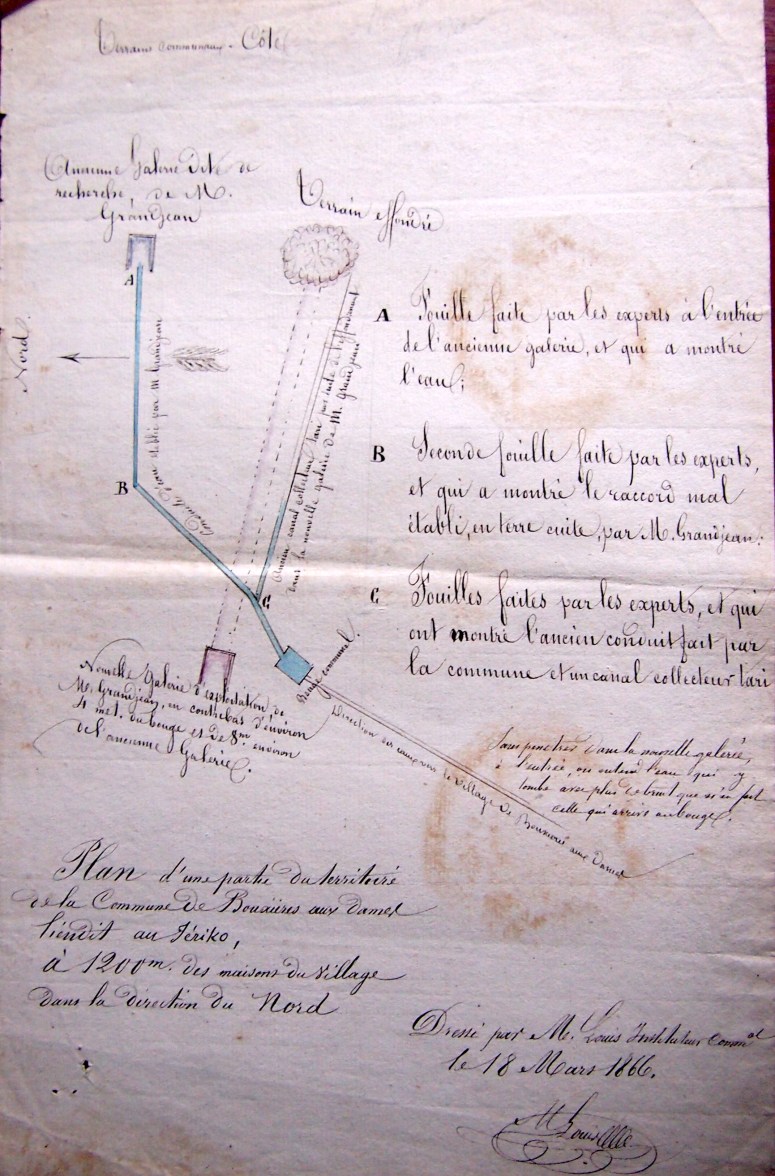 Terrains communaux - Côte
Ancienne Galerie dite de
recherche, de M.
Grandjean
Terrain effondré
Nord.
A
B
C
Conduite d'eau établie par M. Grandjean
Ancien canal collecteur tari par suite de l'effondrement
dans la nouvelle galerie de M. Grandjean
A Fouille faite par les experts à l'entrée
de l'ancienne galerie, et qui a montré
l'eau;
B Seconde fouille faite par les experts,
et qui a montré le raccord mal
établi, en terre cuite, par M. Grandjean.
C Fouilles faites par les experts, et qui
ont montré l'ancien conduit fait par
la commune et un canal collecteur tari
Nouvelle Galerie d'exploitation de
M. Grandjean, en contrebas d'environ
4 met. du bouge et de 8m environ
de l'ancienne Galerie.
Bouge communal.
Direction des eaux vers le village de Bouxières aux Dames
Sans pénétrer dans la nouvelle galerie,
à l'entrée, on entend l'eau qui y
tombe avec plus de bruit que n'en fait
celle qui arrive au bouge.
Plan d'une partie du territoire
de la Commune de Bouxières aux Dames
lieudit au Jériko,
à 1200m. des maisons du village
dans la direction du Nord
Dressé par M. Louis Instituteur Commal
le 18 Mars 1866.
M Louis